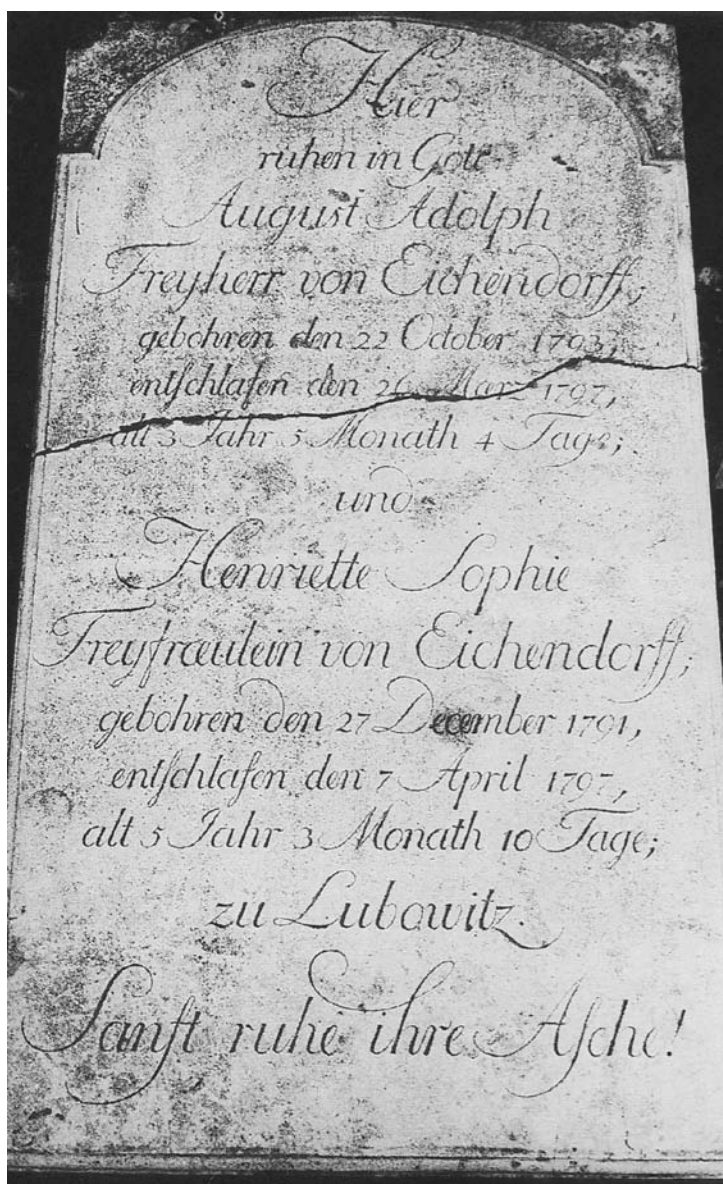 Hier
ruhen in Gott
August Adolph
Freyherr von Eichendorff,
gebohren den 22 October 1793,
entſchlafen den 26 März 1797,
alt 3 Jahr 5 Monath 4 Tage;
und
Henriette Sophie
Freyfræulein von Eichendorff,
gebohren den 27 December 1791,
entſchlafen den 7 April 1797,
alt 5 Jahr 3 Monath 10 Tage;
zu Lubowitz.
Sanft ruhe ihre Aſche!